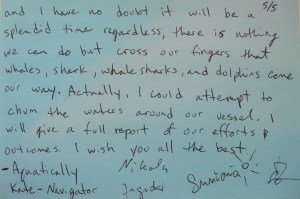 and I have no doubt it will be a 5/5
splendid time regardless, there is nothing
we can do but cross our fingers that
whales, shark, whale sharks, and dolphins come
our way. Actually, I could attempt to
chum the waters around our vessel. I
will give a full report of our efforts &
outcomes. I wish you all the best.
-Aquatically Nikola
Kate-Navigator Jagoda